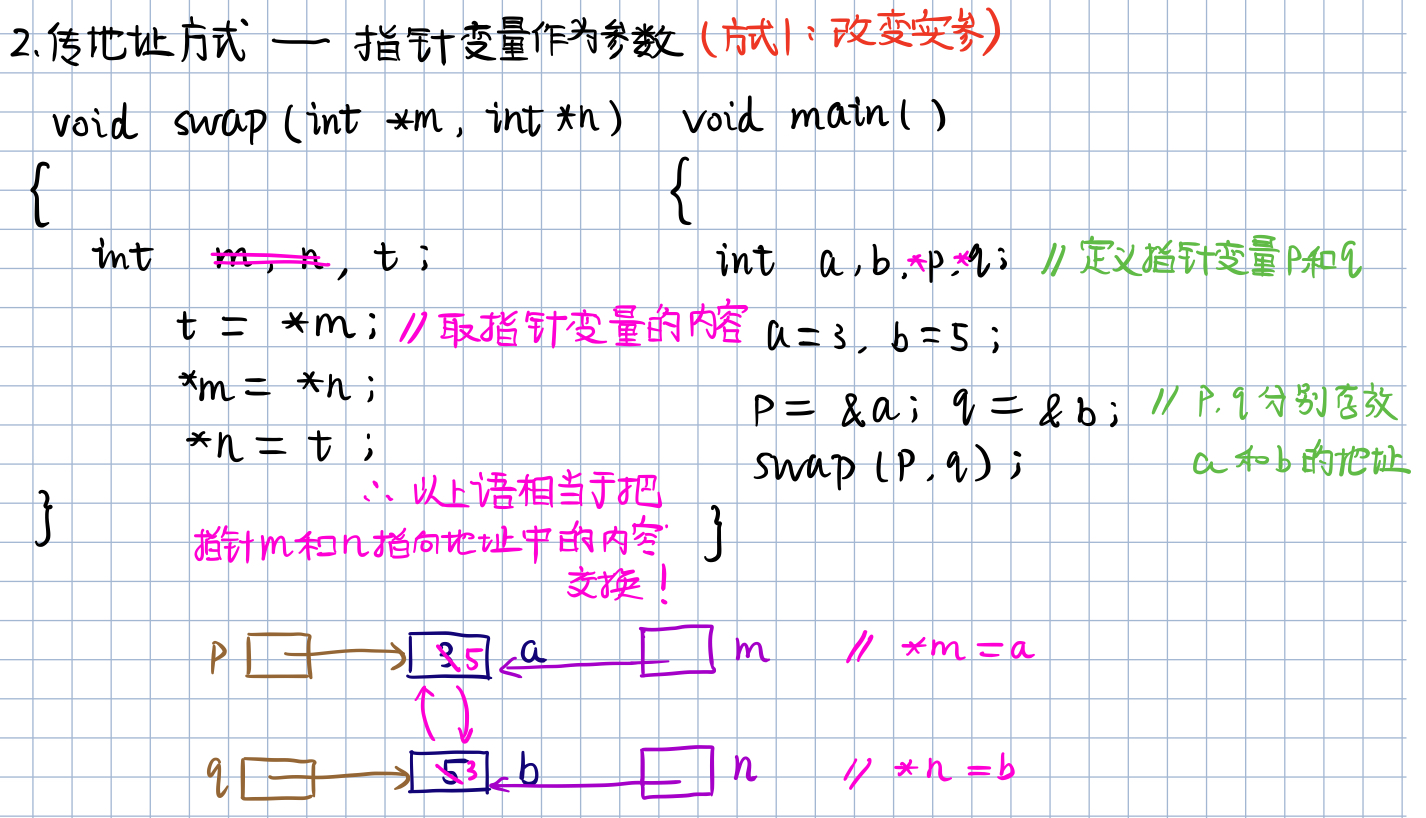 2.传地址方式 — 指针变量作为参数 (方式1:改变实参)
void swap (int *m, int *n)
{
int m, n, t;
t = *m; //取指针变量的内容
*m = *n;
*n = t;
∴以上语相当于把
指针m和n指向地址中的内容
交换!
}
void main()
{
int a, b, *p, *q; //定义指针变量P和q
a=3, b=5;
P= &a; q= &b; //P.q分别存放
a和b的地址
swap (P, q);
}
p 3 5 a m // *m=a
q 5 3 b n // *n=b